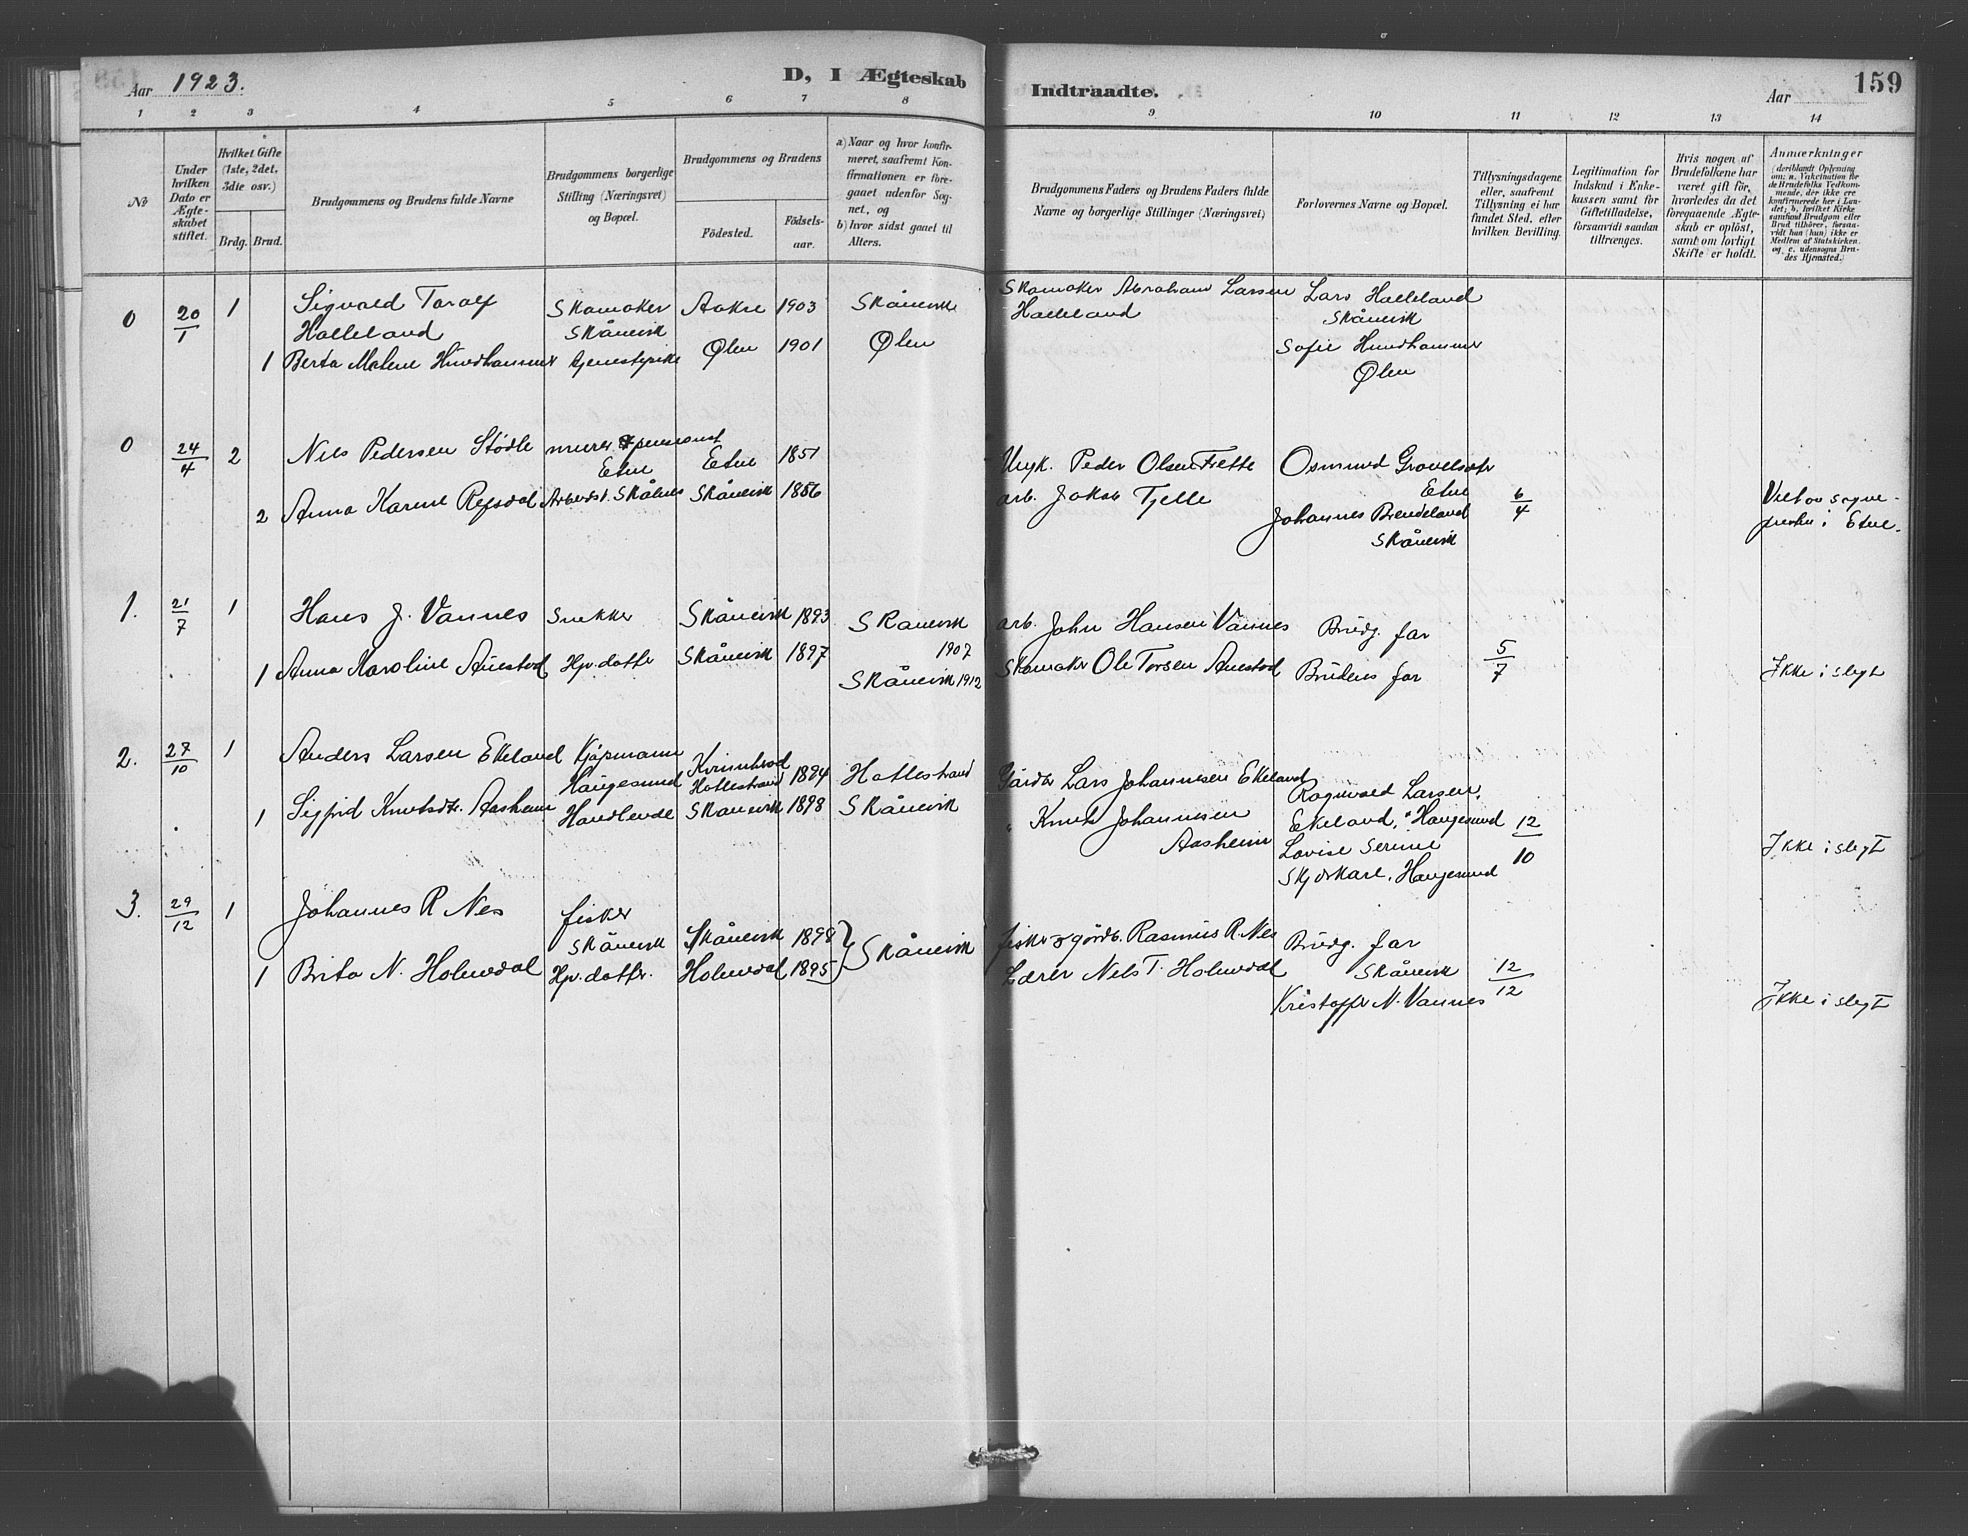 Aar 1923.
D, I Ægteskab
Indtraadte.
Aar
159
1 2 3 4 5 6 7 8 9 10 11 12 13 14
No
Under hvilken Dato er Ægteskabet stiftet.
Hvilket Gifte (1ste, 2det, 3die osv.)
Brdg. Brud.
Brudgommens og Brudens fulde Navne
Brudgommens borgerlige Stilling (Næringsvei) og Bopæl.
Brudgommens og Brudens
Fødested.
Fødselsaar.
a) Naar og hvor konfirmeret, saafremt Konfirmationen er foregaaet udenfor Sognet, og
b) hvor sidst gaaet til Alters.
Brudgommens Faders og Brudens Faders fulde Navne og borgerlige Stillinger (Næringsvei)
Forlovernes Navne og Bopæl.
Tillysningsdagene eller, saafremt Tillysning ei har fundet Sted, efter hvilken Bevilling.
Legitimation for Indskud i Enkekassen samt for Giftetilladelse, forsaavidt saadan tiltrænges.
Hvis nogen af Brudefolkene har været gift før, hvorledes da det foregaaende Ægteskab er opløst, samt om lovligt Skifte er holdt.
Anmærkninger
(deriblandt Oplysning om: a. Vakcination for de Brudefolks Vedkommende, der ikke ere konfirmerede her i Landet; b. hvilket Kirkesamfund Brudgom eller Brud tilhører, forsaavidt han (hun) ikke er Medlem af Statskirken, og c. udensogns Brudes Hjemsted.)
0 20/1 1 Sigvald Toralf Skomaker Aakre 1903 Skånevik Skomaker Abraham Larsen Lars Halleland
Halleland Skånevik Halleland Skånevik
1 Berta Malene Hundhammer tjenestepike Ølen 1901 Ølen Sofie Hundhammer
Ølen
0 24/4 2 Nils Pedersen Stødle murer pensionist Etne 1851 Peder Olsen Osmund
Etne Etne
2 Anna Karine Refsdal Skålnes Skånevik 1856 arb. Jakob Tjelle Johannes Brendeland 6/4
Skånevik
i Etne.
1. 21/7 1 Hans J. Vannes Snekker Skånevik 1893 Skånevik 1907 arb. John Hansen Vannes Brudg. far
1 Anna Karoline Auestad Hp. datter Skånevik 1897 Skånevik 1912 Skomaker Ole Torsen Auestad Brudens far 5/7 Ikke i slegt
2. 27/10 1 Anders Larsen Ekeland Kjøpmann Kvinnherad 1894 Hattestrand Gårdbr Lars Johannesen Ekeland Ragnvald Larsen
Haugesund Hattestrand Ekeland, Haugesund
1 Sigfrid Knutsdtr. Aasheim Handlende Skånevik 1898 Skånevik " Knut Johannesen Lovise Serine 12/10
Aasheim Haugesund Ikke i slegt
3. 29/12 1 Johannes R Nes fisker Skånevik 1898 Skånevik fisker & gårdb. Rasmus R. Nes Brudg. far
Skånevik Skånevik
1 Brita N. Holmedal Hp. datter. Holmedal 1895 Lærer Nels T. Holmedal 12/12
Kristoffer N. Vannes Ikke i slegt